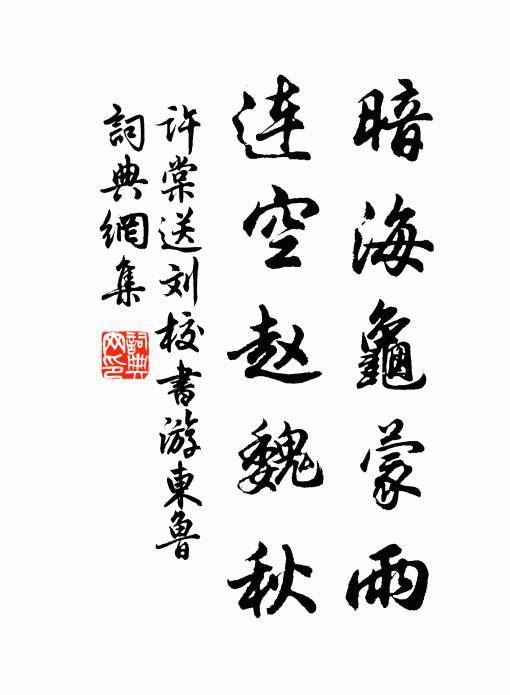 暗海龜蒙雨
连空赵魏秋
许棠送刘校書游東魯
詞典網集
詞典网印